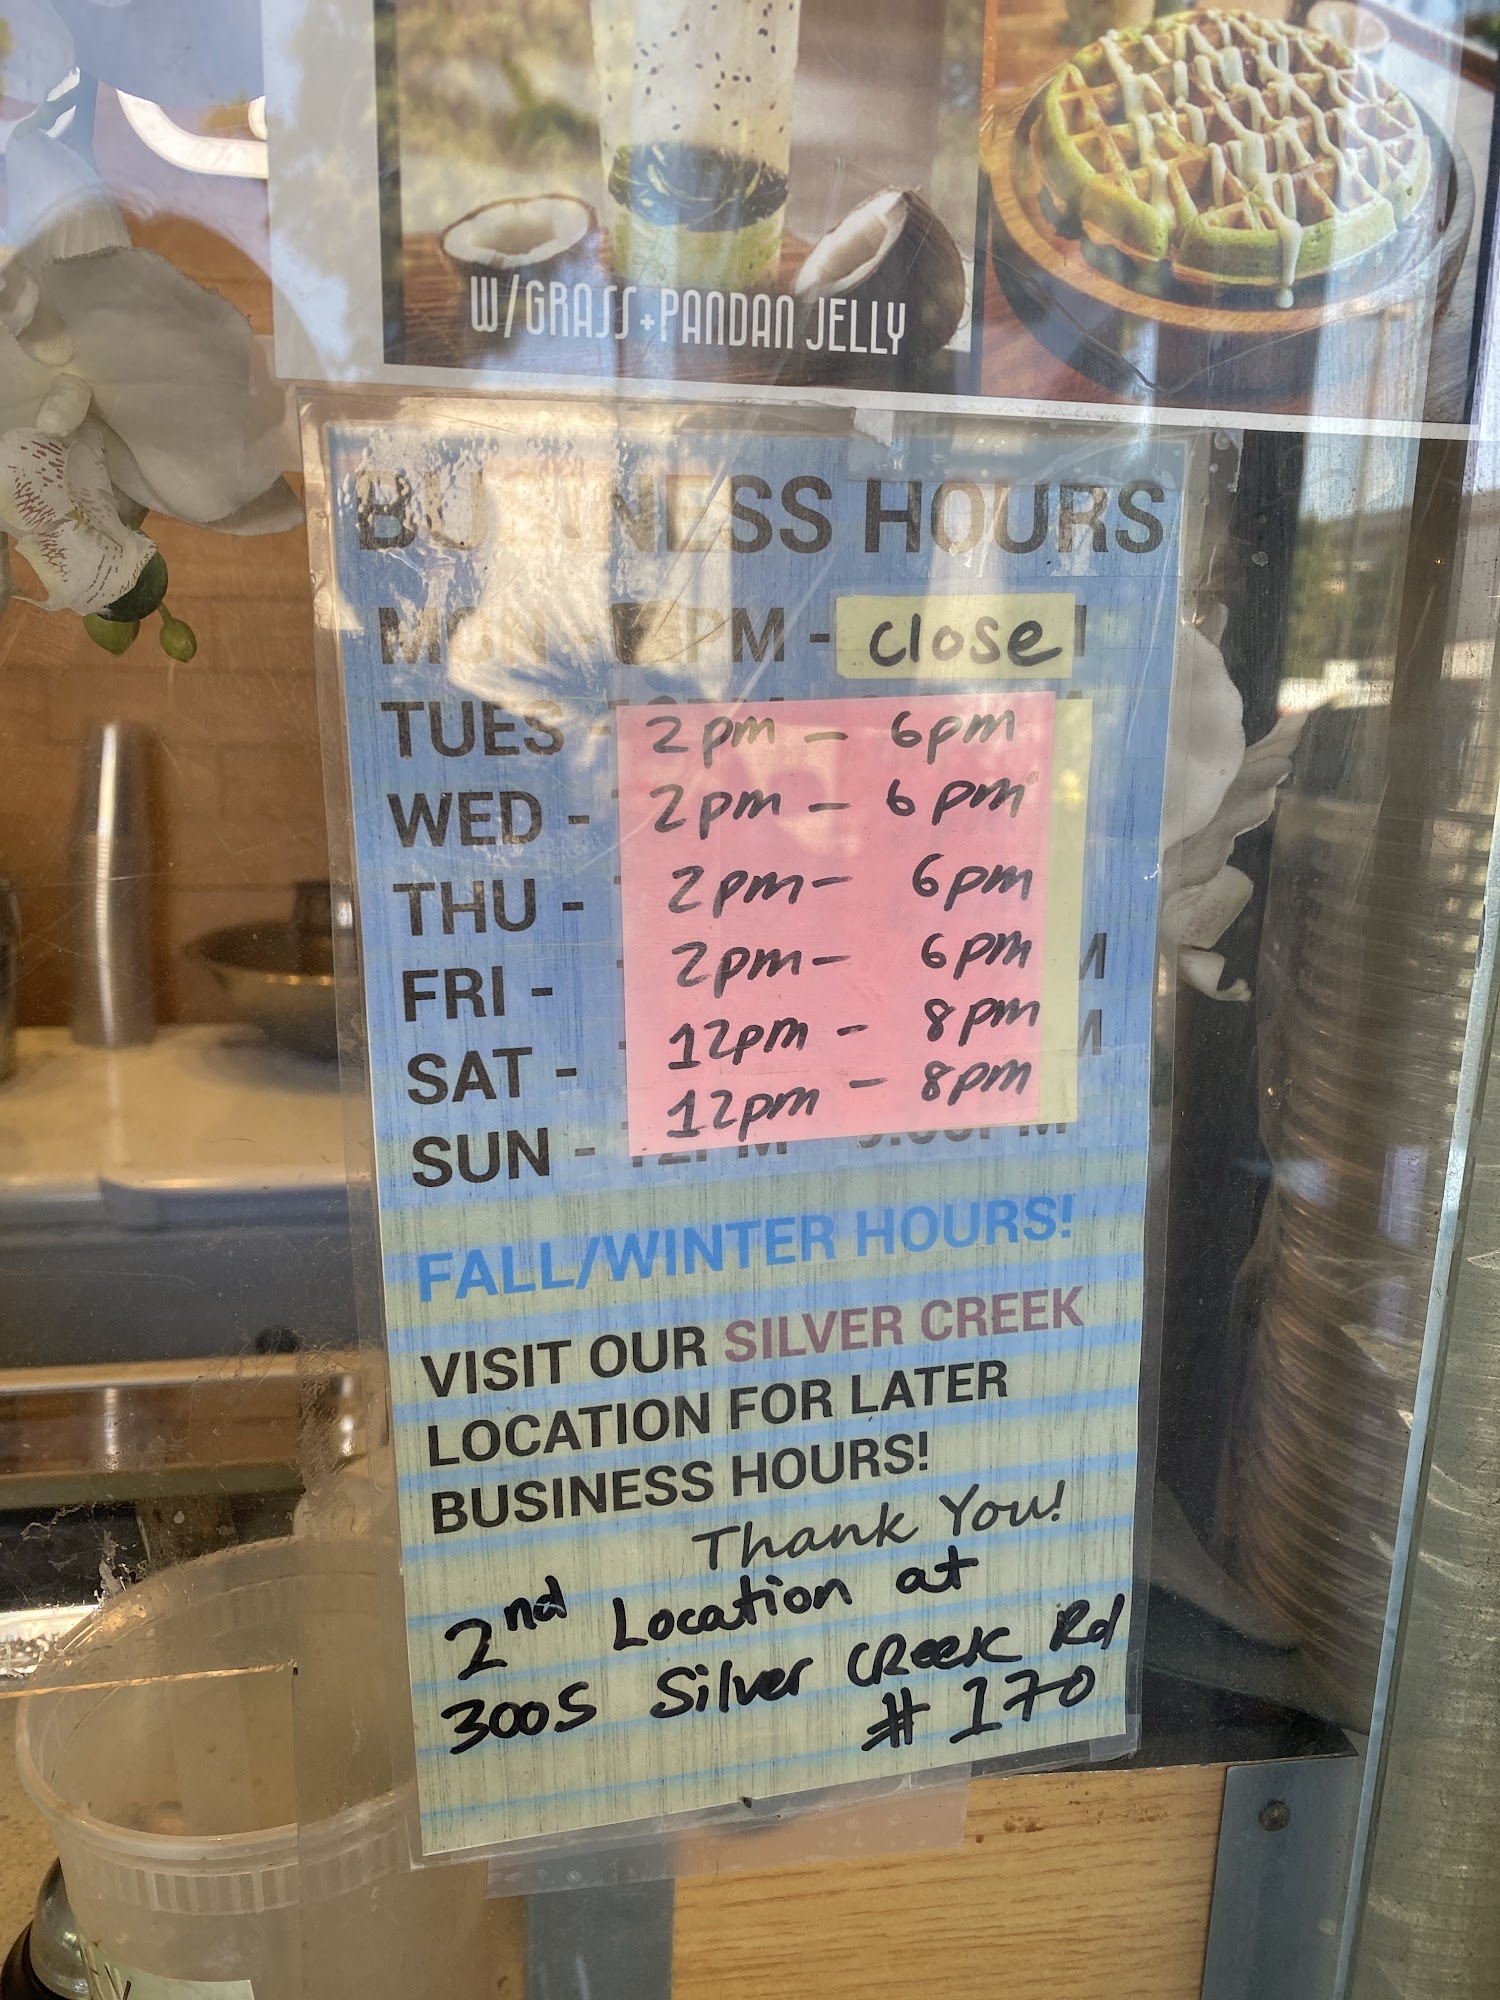 W/GRASS + PANDAN JELLY
BUSINESS HOURS
MON - PM - close
TUES - 2pm - 6pm
WED - 2pm - 6pm
THU - 2pm - 6pm
FRI - 2pm - 6pm
SAT - 12pm - 8pm
SUN - 12pm - 8pm
FALL/WINTER HOURS!
VISIT OUR SILVER CREEK
LOCATION FOR LATER
BUSINESS HOURS!
Thank You!
2nd Location at
3005 Silver Creek Rd
# 170